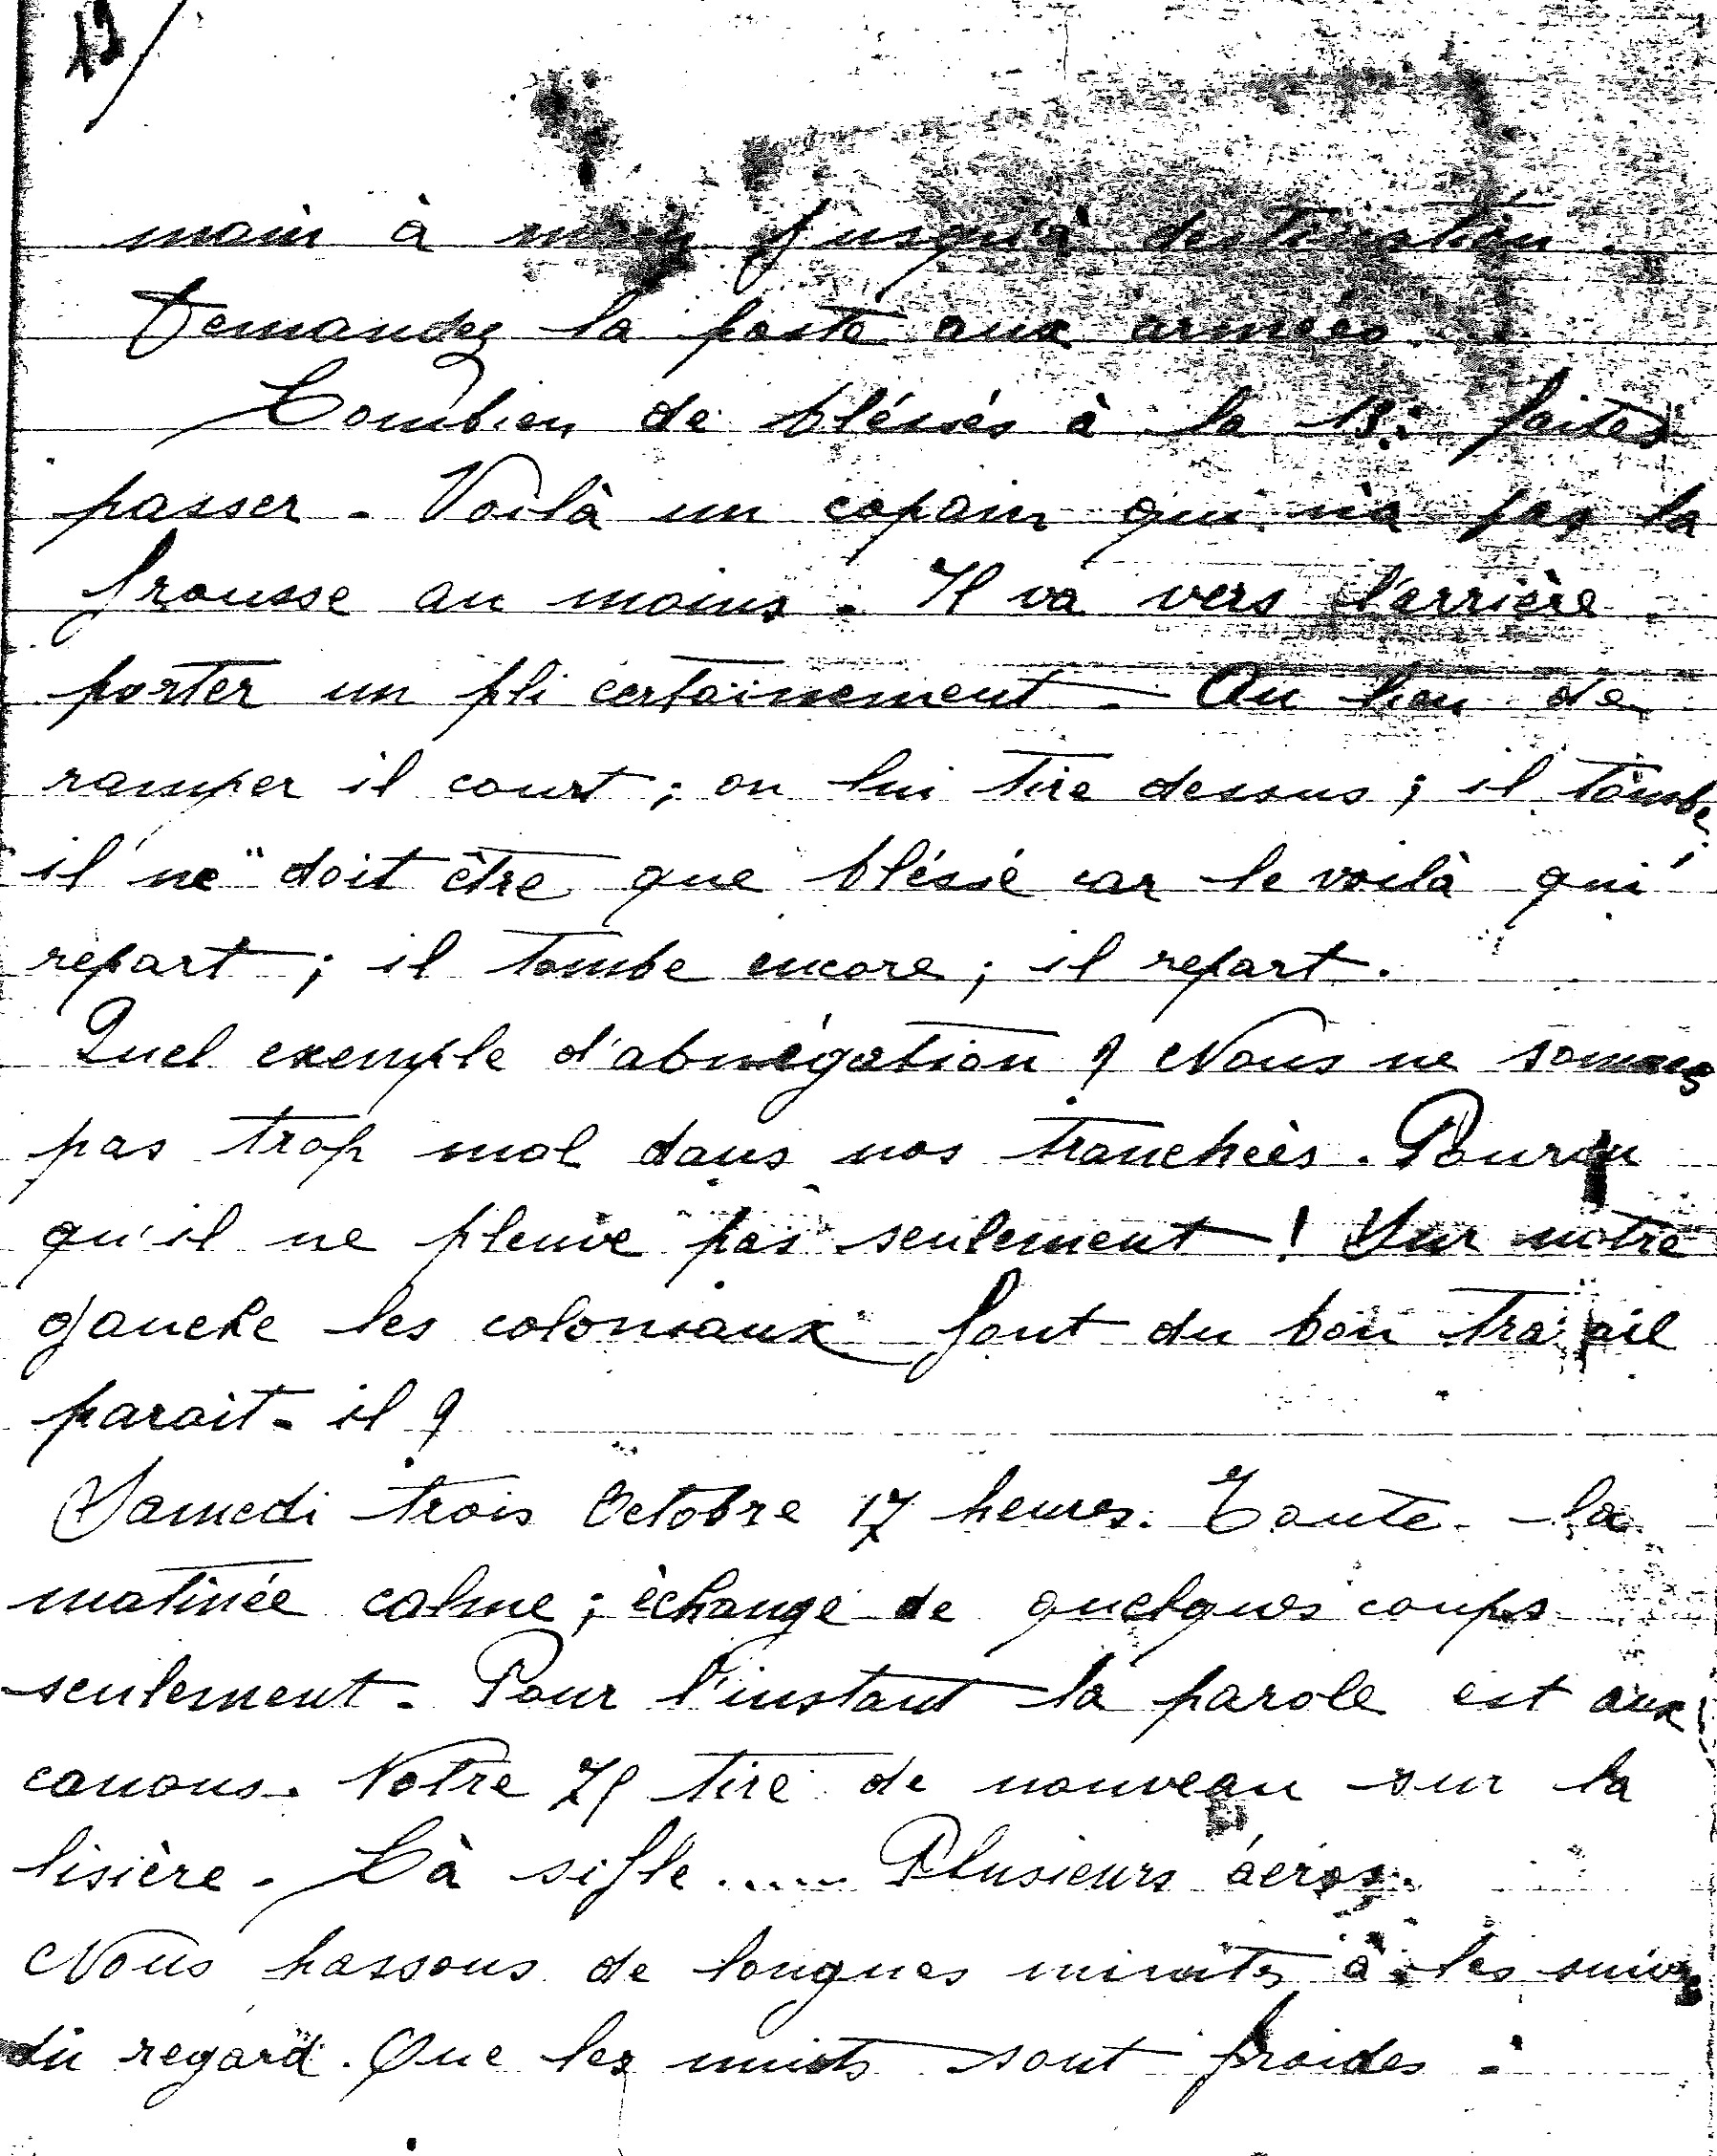 main à main jusqu'à destination.
Demandez la poste aux armées.
Combien de bléssés à la 13: faites
passer - Voilà un copain qui n'a pas la
frousse au moins. Il va vers l'arrière
porter un pli certainement - Au lieu de
ramper il court ; on lui tire dessus ; il tombe
il ne doit être que bléssé car le voilà qui
repart ; il tombe encore ; il repart.
Quel exemple d'abnégation ? Nous ne sommes
pas trop mal dans nos tranchées. Pourvu
qu'il ne pleuve pas seulement ! Sur notre
gauche les coloniaux font du bon travail
parait-il ?
Samedi trois Octobre 17 heures. Toute la
matinée calme ; échange de quelques coups
seulement. Pour l'instant la parole est aux
canons. Notre 75 tire de nouveau sur la
lisière. Cà sifle ..... Plusieurs aéros.
Nous passons de longues minutes à les suivre
du regard. Que les nuits sont froides :